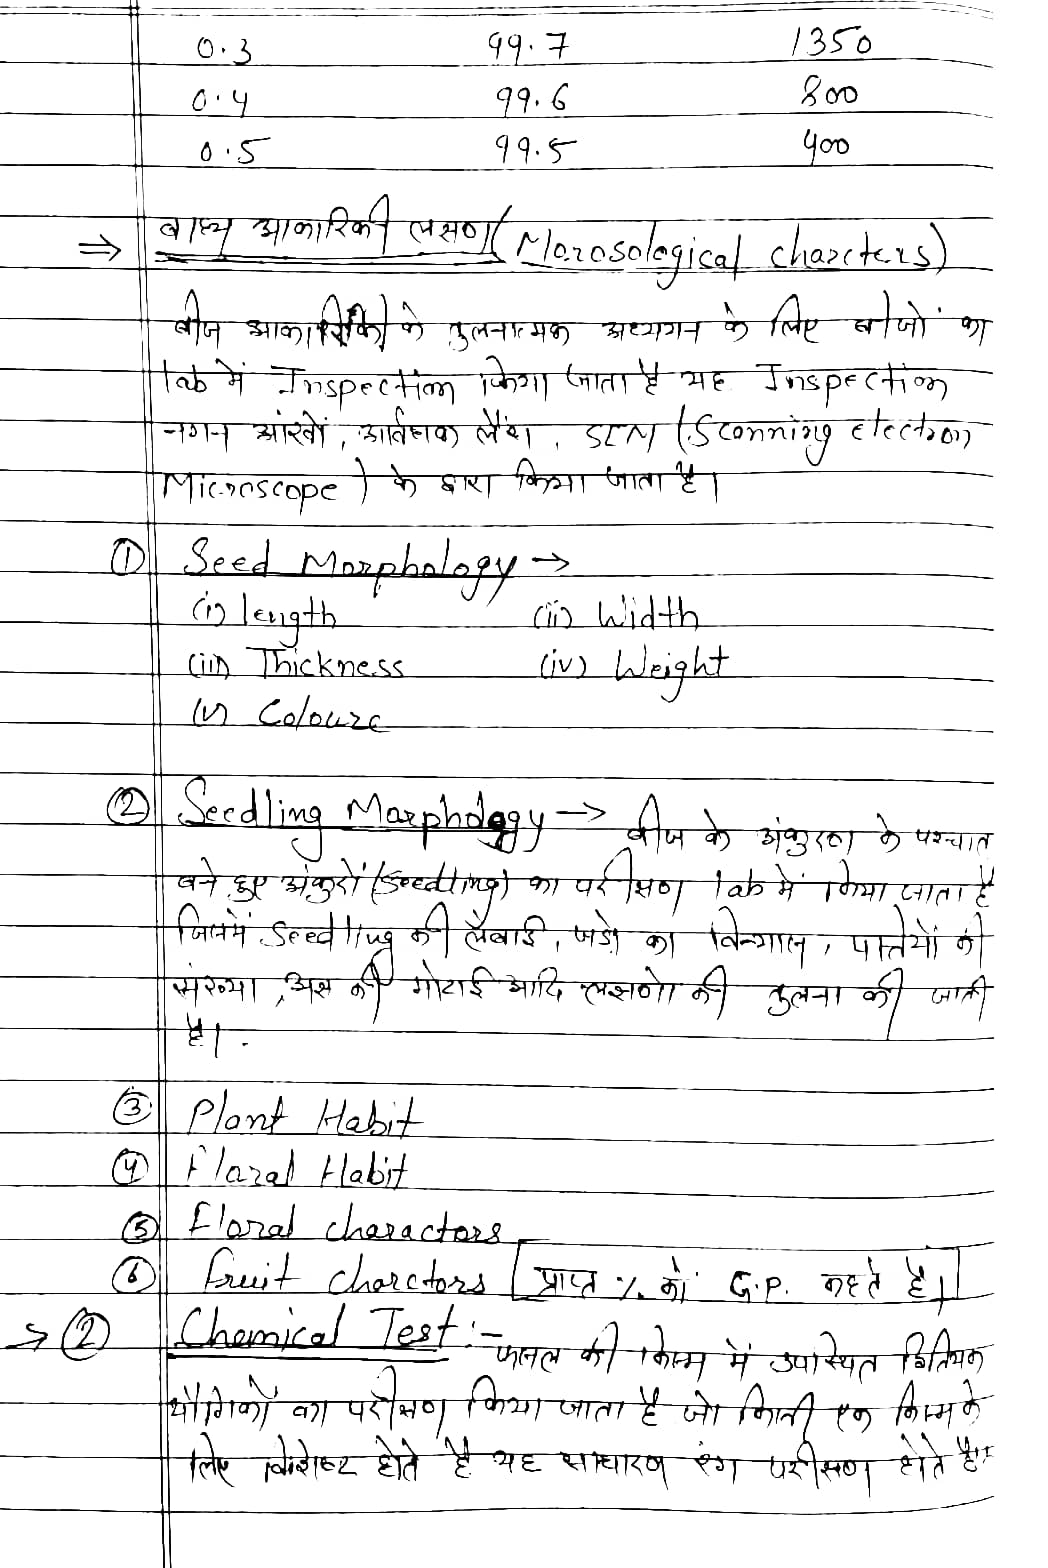 0.3 99.7 1350
0.4 99.6 800
0.5 99.5 400
⇒ बाह्य आकारिकी लक्षण (Morosological charcters)
बीज आकारिकी के तुलनात्मक अध्ययन के लिए बीजों का
lab में Inspection किया जाता है यह Inspection
नग्न आंखों, आर्वधक लैंश, SEM (Scanning electron
Microscope) के द्वारा किया जाता है।
① Seed Morphology →
(i) length (ii) Width
(iii) Thickness (iv) Weight
(v) Coloure
② Seedling Morphology → बीज के अंकुरण के पश्चात
बने हुए अंकुरों (Seedling) का परीक्षण lab में किया जाता है
जिसमें Seedling की लंबाई, जड़ो का विन्यास, पत्तियों की
संख्या, अक्ष की मोटाई आदि लक्षणों की तुलना की जाती
है।
③ Plant Habit
④ Floral Habit
⑤ Floral charactors
⑥ fruit charctors [प्राप्त % को G.P. कहते है।]
→ ② Chemical Test :- फसल की किस्म में उपास्थित द्वितियक
यौगिकों का परीक्षण किया जाता है जो किसी एक किस्म के
लिए विशिष्ट होते है यह साधारण रंग परीक्षण होते है